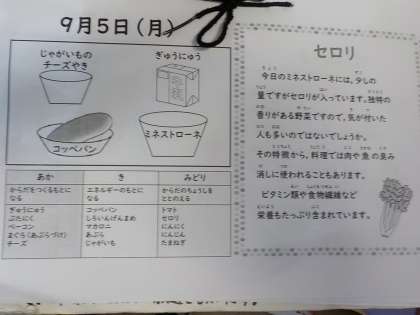 9月5日(月)
じゃがいもの
チーズやき
ぎゅうにゅう
コッペパン
ミネストローネ
あか
き
みどり
からだをつくるもとに
なる
エネルギーのもとに
なる
からだのちょうしを
ととのえる
ぎゅうにゅう
ぶたにく
ベーコン
まぐろ(あぶらづけ)
チーズ
コッペパン
しろいんげんまめ
マカロニ
あぶら
じゃがいも
トマト
セロリ
にんにく
にんじん
たまねぎ
セロリ
今日のミネストローネには、少しの
量ですがセロリが入っています。独特の
香りがある野菜ですので、気が付いた
人も多いのではないでしょうか。
その特徴から、料理では肉や魚の臭み
消しに使われることもあります。
ビタミン類や食物繊維など
栄養もたっぷり含まれています。